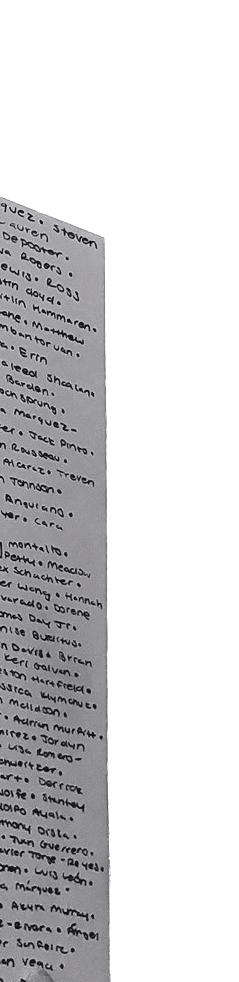 quez. Steven
Lauren
Deposter.
va Rogers.
ewis. Ross
tin Cloyd.
itlin Hammaren.
ane. Matthew
mbantoruan.
a. Erin
aleed Shaalan.
Barden.
ochsprung.
a Marquez-
er. Jack Pinto.
n Rousseau.
Alcaraz. Treven
n Johnson.
Anguiano.
yer. Cara
Montalto.
Petty. Meadow
ex Schachter.
er Wang. Hannah
varado. Dorene
omas Day Jr.
nise
n Davis. Brian
Keri Galvan.
eston Hartfield.
ssica Klymchuk.
n Meldoon.
. Adrian Murfitt.
mirez. Jordyn
. Lisa Romero-
chweitzer.
art. Derrick
Wolfe. Stanley
dolfo Ayala.
thony
. Juan Guerrero.
avier Jorge-Reyes.
onen. Luis León.
a Márquez.
. Akyra Murray.
z-Elvara. Ángel
er Sunfeliz.
an Vega.